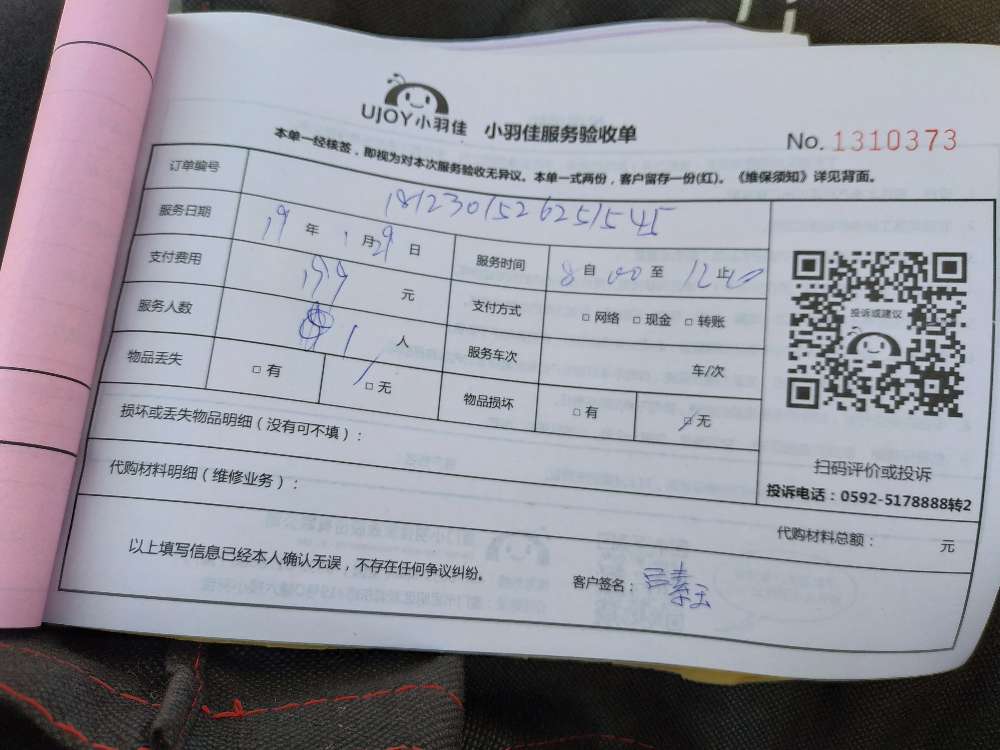 UJOY小羽佳 小羽佳服务验收单
No. 1310373
本单一经核签，即视为对本次服务验收无异议。本单一式两份，客户留存一份(红)。《维保须知》详见背面。
订单编号 1812301526251545
服务日期 19 年 1 月 29 日 服务时间 8 自 00 至 12 止
支付费用 199 元 支付方式 □ 网络 □ 现金 □ 转账
服务人数 1 人 服务车次 车/次
物品丢失 □ 有 □ 无 物品损坏 □ 有 □ 无
损坏或丢失物品明细（没有可不填）：
代购材料明细（维修业务）：
投诉或建议
扫码评价或投诉
投诉电话：0592-5178888转2
代购材料总额： 元
以上填写信息已经本人确认无误，不存在任何争议纠纷。 客户签名：